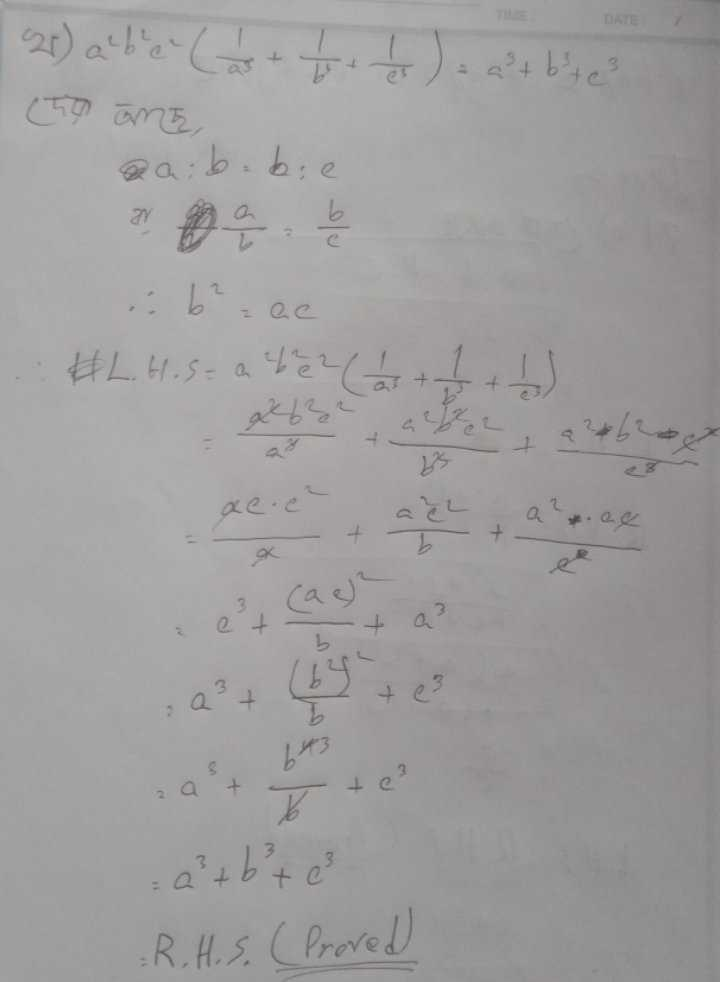 TIME: DATE: /
২।) a²b²c² (1/a³ + 1/b³ + 1/c³) = a³ + b³ + c³
দেওয়া আছে,
a : b = b : c
বা, a/b = b/c
∴ b² = ac
∴ L.H.S = a²b²c² (1/a³ + 1/b³ + 1/c³)
= a²b²c²/a³ + a²b²c²/b³ + a²b²c²/c³
= ac·c²/a + a²c²/b + a²·ac/c
= c³ + (ac)²/b + a³
= a³ + (b²)²/b + c³
= a³ + b⁴³/b + c³
= a³ + b³ + c³
= R.H.S. (Proved)